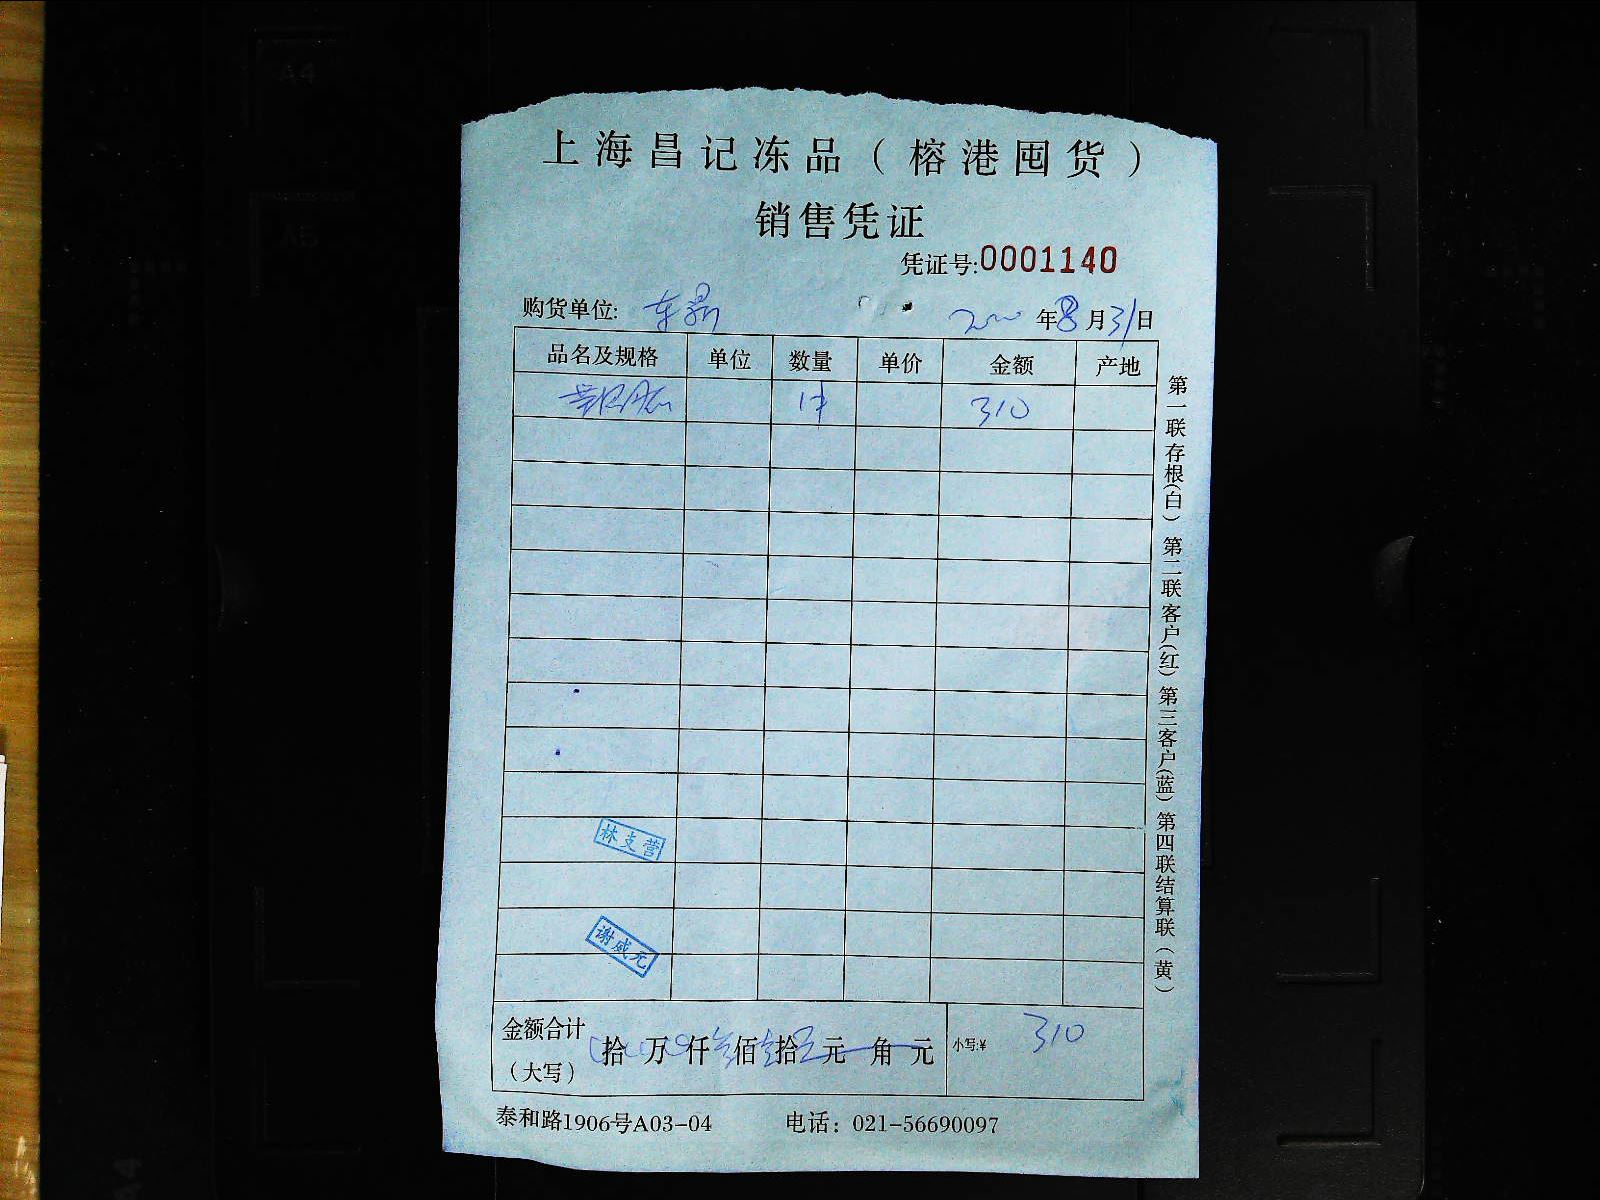 上海昌记冻品（榕港囤货）
销售凭证
凭证号:0001140
购货单位: 东 年8月31日
品名及规格 单位 数量 单价 金额 产地
1件 310
林支营
谢威元
金额合计（大写） 拾 万 仟 佰 拾 元 角 元 小写:¥ 310
泰和路1906号A03-04 电话：021-56690097
第一联存根(白) 第二联客户(红) 第三客户(蓝) 第四联结算联(黄)